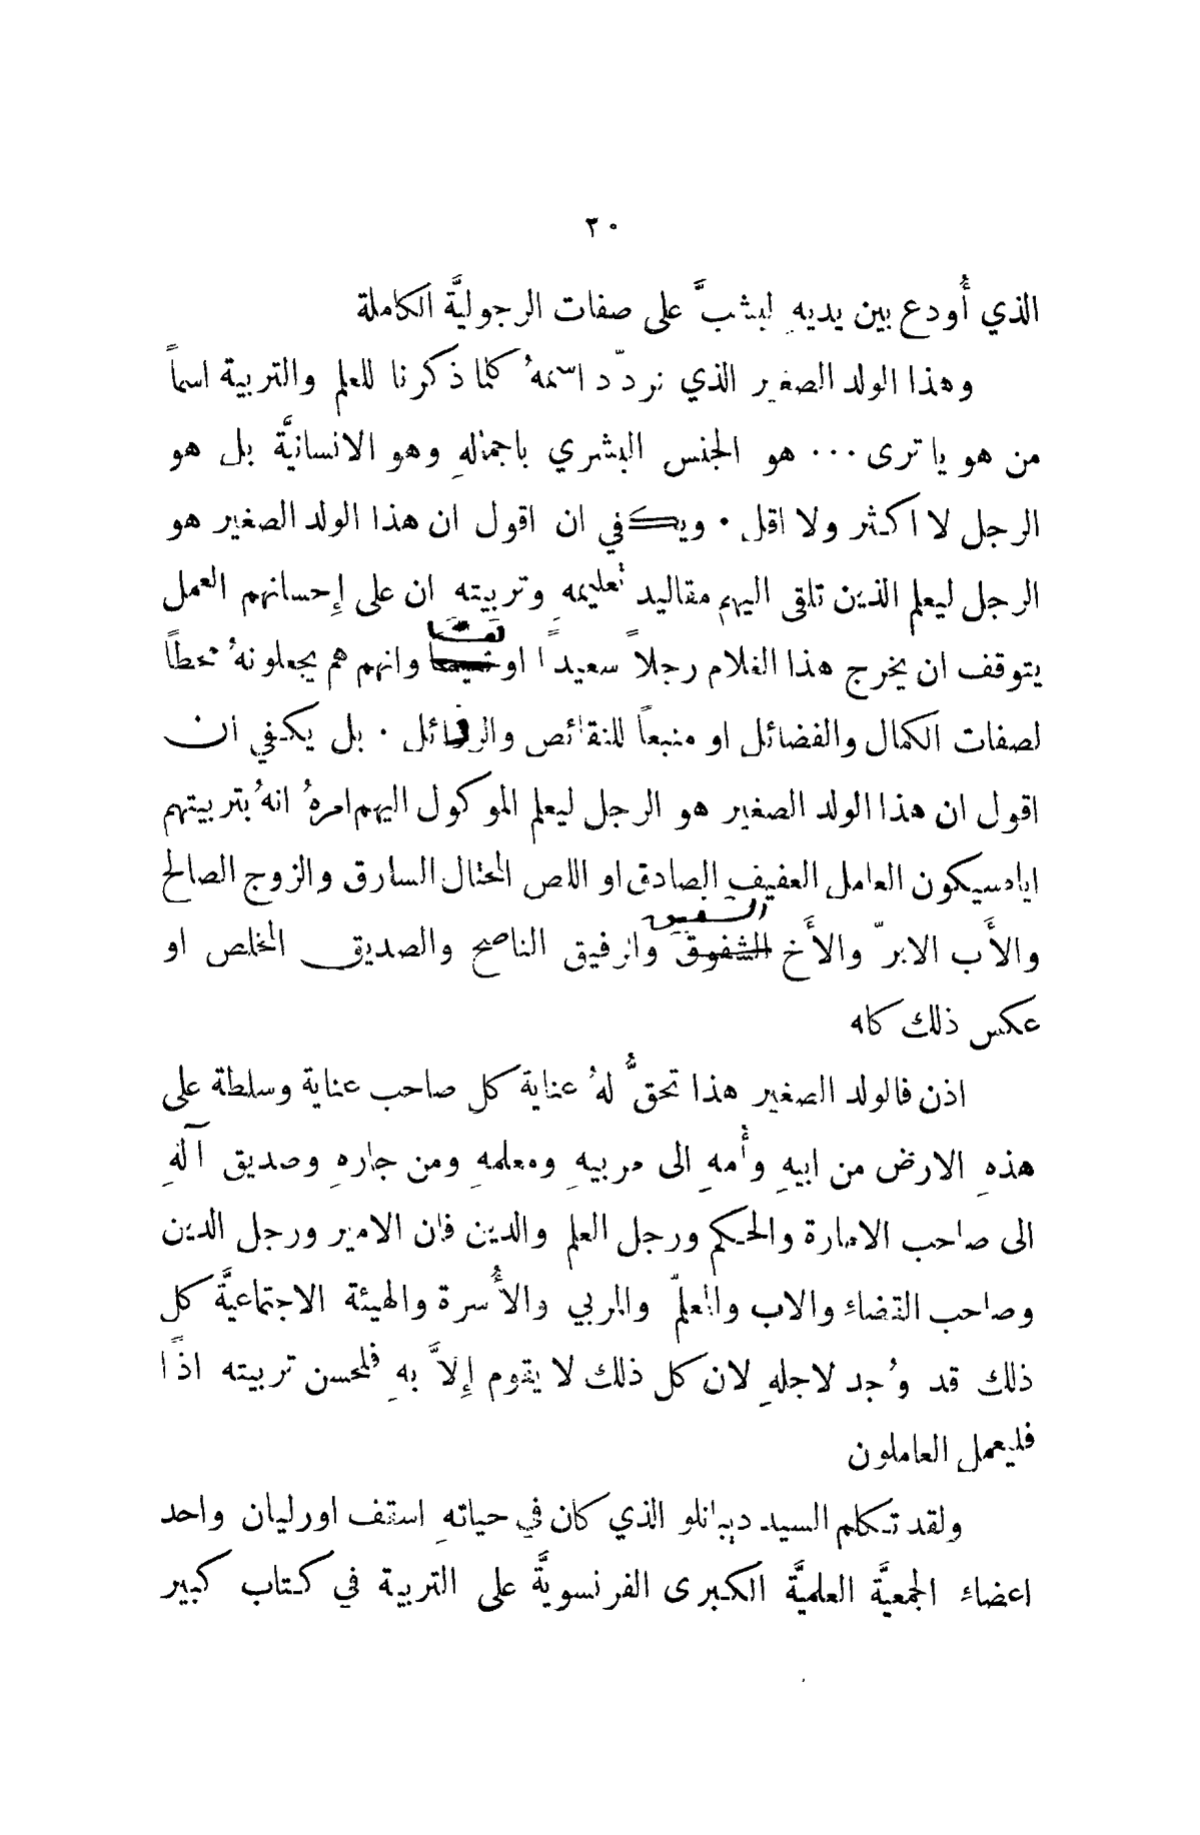 ٢٠
الذي أُودع بين يديهِ ليشبَّ على صفات الرجوليَّة الكاملة
وهذا الولد الصغير الذي نردّد اسمهُ كلما ذكرنا للعلم والتربية اسماً
من هو يا ترى ... هو الجنس البشري باجملهِ وهو الانسانيَّة بل هو
الرجل لا اكثر ولا اقل . ويكفي ان اقول ان هذا الولد الصغير هو
الرجل ليعلم الذين تلقى اليهم مقاليد تعليمهِ وتربيتهِ ان على إِحسانهم العمل
يتوقف ان يخرج هذا الغلام رجلاً سعيداً او وانهم هم يجعلونهُ محطاً
لصفات الكمال والفضائل او منبعاً للنقائص والرذائل . بل يكفي ان
اقول ان هذا الولد الصغير هو الرجل ليعلم الموكول اليهم امرهُ انهُ بتربيتهم
اياه سيكون العامل العفيف الصادق او اللص المحتال السارق والزوج الصالح
والأَب الابرّ والأَخ الشفوق والرفيق الناصح والصديق المخلص او
عكس ذلك كله
اذن فالولد الصغير هذا تحقُّ لهُ عناية كل صاحب عناية وسلطة على
هذهِ الارض من ابيهِ وأُمهِ الى مربيهِ ومعلمهِ ومن جارهِ وصديق آلهِ
الى صاحب الامارة والحكم ورجل العلم والدين فان الامير ورجل الدين
وصاحب القضاء والاب والمعلّم والمربي والأُسرة والهيئة الاجتماعيَّة كل
ذلك قد وُجد لاجلهِ لان كل ذلك لا يقوم إِلاَّ بهِ فلمحسن تربيته اذًا
فليعمل العاملون
ولقد تكلم السيد ديبانلو الذي كان في حياتهِ اسقف اورليان واحد
اعضاء الجمعيَّة العلميَّة الكبرى الفرنسويَّة على التربية في كتاب كبير